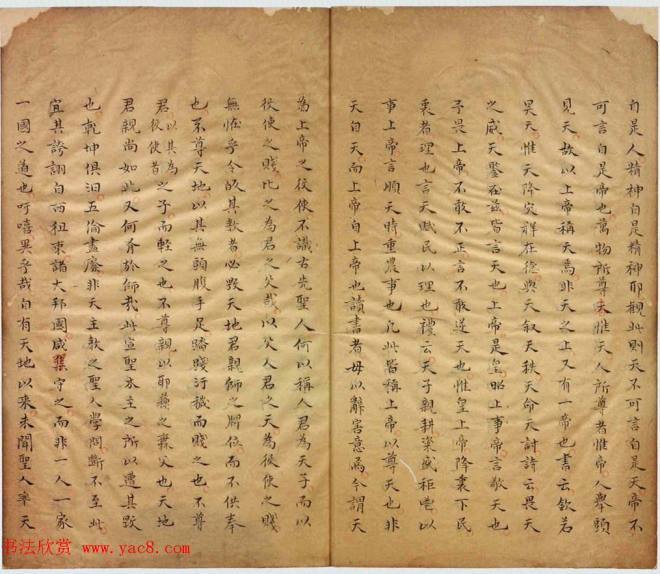 自是人精神自是精神耶觀此則天不可言自是天帝不
可言自是帝也萬物所尊者惟天人所尊者惟帝人舉頭
見天故以上帝稱天焉非天之上又有一帝也書云欽若
昊天惟天降災祥在德與天叙天秩天命天討詩云畏天
之威天鑒在茲皆言天也上帝是皇昭上事帝言敬天也
予畏上帝不敢不正言不敢逆天也惟皇上帝降衷下民
衷者理也言天賦民以理也禮云天子親耕粢盛秬鬯以
事上帝言順天時重農事也凡此皆稱上帝以尊天也非
天自天而上帝自上帝也讀書者毋以辭害意焉今謂天
為上帝之役使不識古先聖人何以稱人君為天子而以
役使之賤比之為君之父哉以父人君之天為役使之賤
無怪乎令改其教者必毀天地君親師之牌位而不供奉
也不尊天地以其無頭腹手足踏踐汙穢而賤之也不尊
君以其為役使者之子而輕之也不尊親以耶蘇之無父也天地
君親尚如此又何有於師哉此宣聖木主之所以遭其毀
也乾坤俱汩五倫盡廢非天主教之聖人學問斷不至此
宜其誇詡自西祖東諸大邦國咸習守之而非一人一家
一國之道也吁嘻異乎哉自有天地以來未聞聖人率天
书法欣赏 www.yac8.com